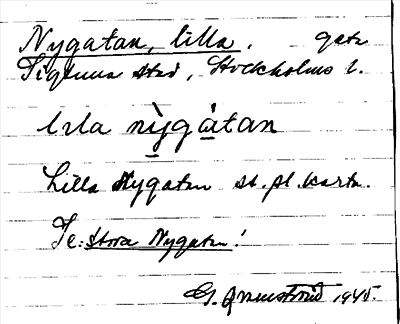 Nygatan, lilla. gata
Sigtuna stad, Stockholms l.
lila nỳgátan
Lilla Nygatan st.pl.karta.
Se: Stora Nygatan!
G. 1945.